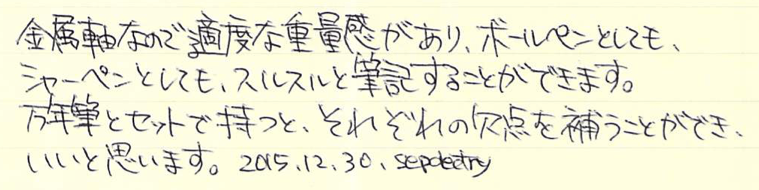 金属軸なので適度な重量感があり、ボールペンとしても、
シャーペンとしても、スルスルと筆記することができます。
万年筆とセットで持つと、それぞれの欠点を補うことができ、
いいと思います。2015.12.30、